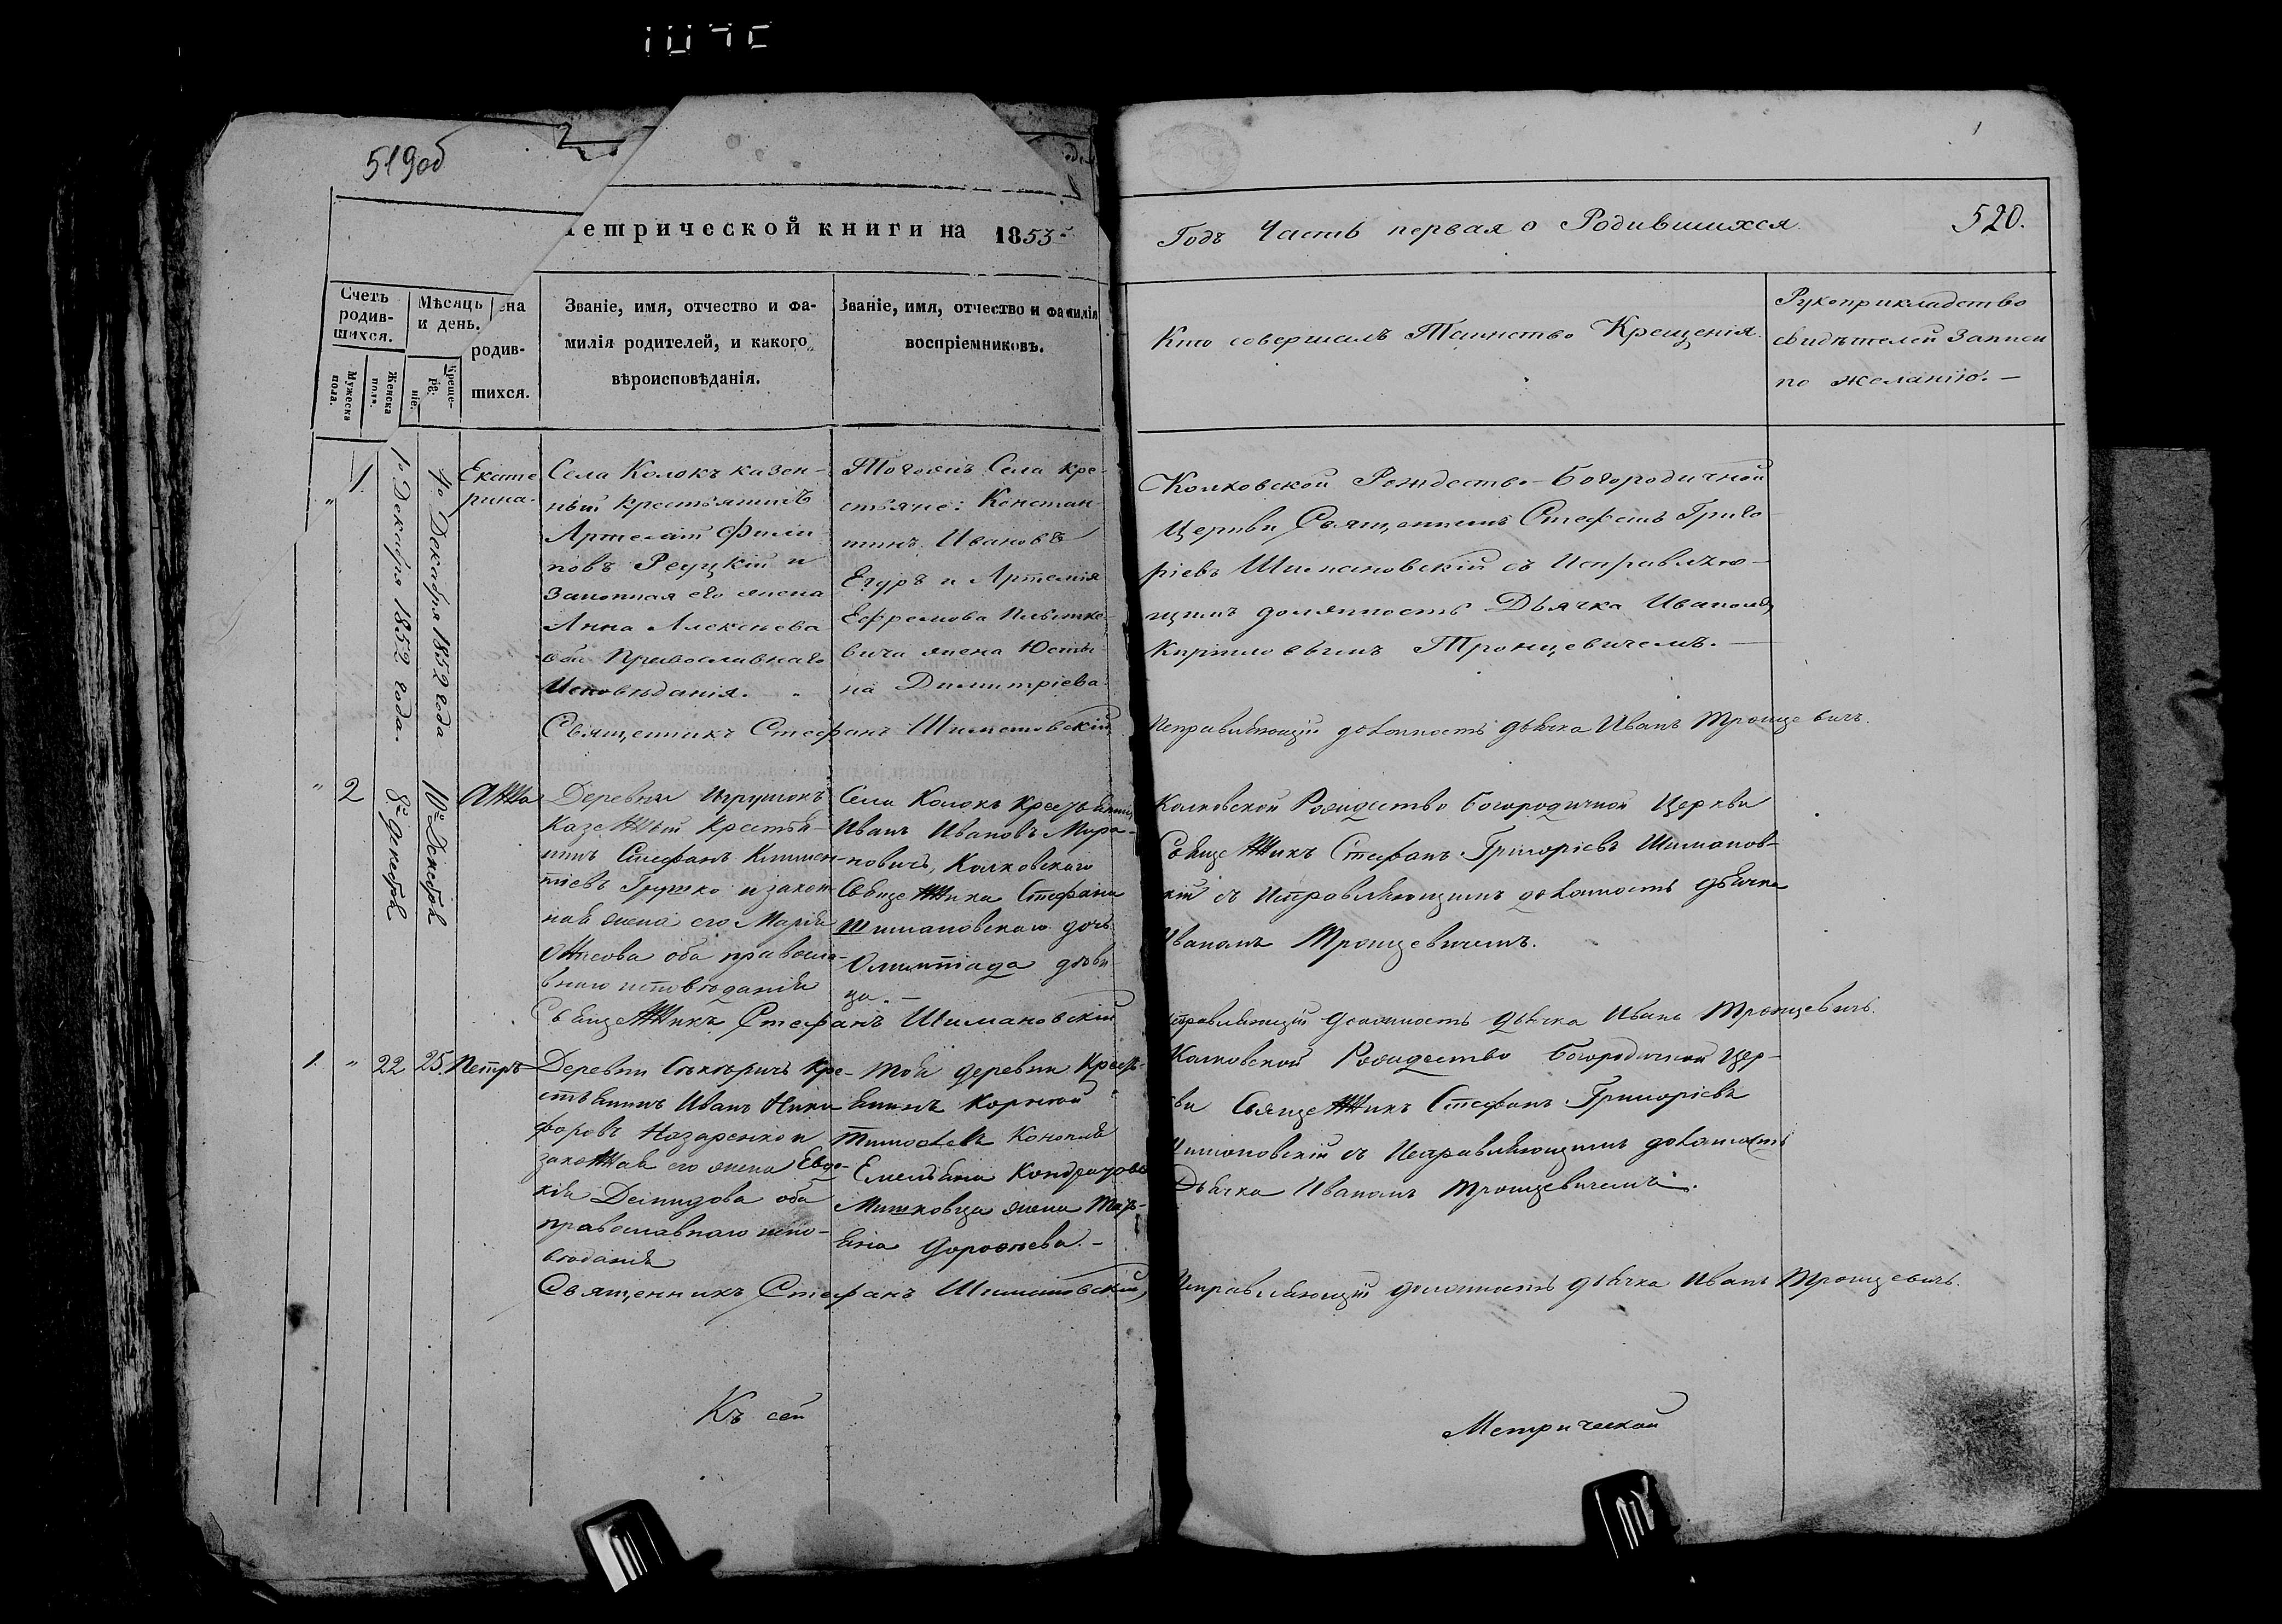 519об
Метрической книги на 1853
Годъ Часть первая о Родившихся
520.
Счетъ родив-шихся.
Мужеска пола.
Женска пола.
Мѣсяцъ и день.
Креще-ніе.
родив-
шихся.
Званіе, имя, отчество и фа-
милія родителей, и какого
вѣроисповѣданія.
Званіе, имя, отчество и фамилія
воспріемниковъ.
Кто совершалъ Таинство Крещенія.
Рукоприкладство
свидѣтелей записи
по желанію. —
"
1.
1о Декабря 1852 года.
4о Декабря 1852 года
Екате
рина.
Села Колокъ казен-
ный крестьянинъ
Филип
повъ Реуцкій и
Законная его жена
Анна Алексѣева
оба Православнаго
Исповѣданія.
Тогожъ Села кре-
стьяне: Констан
тинъ Ивановъ
и Артемія
Ефремова
вича жена Юсти-
на Димитріева
Колковской Рождество-Богородичной
Церкви Священникъ Стефанъ Григо
ріевъ Шимановскій съ Исправляю-
щимъ должность Дьячка Иваномъ
Кириловымъ Тронцевичемъ. —
Священникъ Стефанъ Шимановскій
Исправляющій должность дьячка Иванъ Тронцевичъ.
"
2
8го Декабря
10го Декабря
Анна
Деревни
Казенный Крестья-
нинъ Стефанъ Климен-
тіевъ Грушко и закон-
ная жена его Марія
оба правосла-
внаго исповѣданія
Села Колокъ
Иванъ Ивановъ Мира-
новичъ, Колковскаго
Священника Стефана
Шимановскаго дочь
Олимпіада дѣви
ца. —
Колковской Рождество Богородичной Церкви
Священникъ Стефанъ Григоріевъ Шиманов-
скій съ Исправляющимъ должность дьячка
Иваномъ Тронцевичемъ.
Священникъ Стефанъ Шимановскій
Исправляющій должность дьячка Иванъ Тронцевичъ.
1.
"
22
25.
Петръ
Деревни Кре-
стьянинъ Иванъ Ники
форовъ Назаренко и
законная его жена Евдо-
кія Демидова оба
православнаго испо-
вѣданія
Той деревни Кресть-
янинъ Корнѣй
Тимофеевъ Конопля
Емельяна Кондратова
Мишковца жена Тать-
яна Дорофѣева. —
Колковской Рождество Богородичной Цер-
кви Священникъ Стефанъ Григоріевъ
Шимановскій съ Исправляющимъ должность
Дьячка Иваномъ Тронцевичемъ.
Священникъ Стефанъ Шимановскій,
Исправляющій должность дьячка Иванъ Тронцевичъ.
Къ сей
Метрической